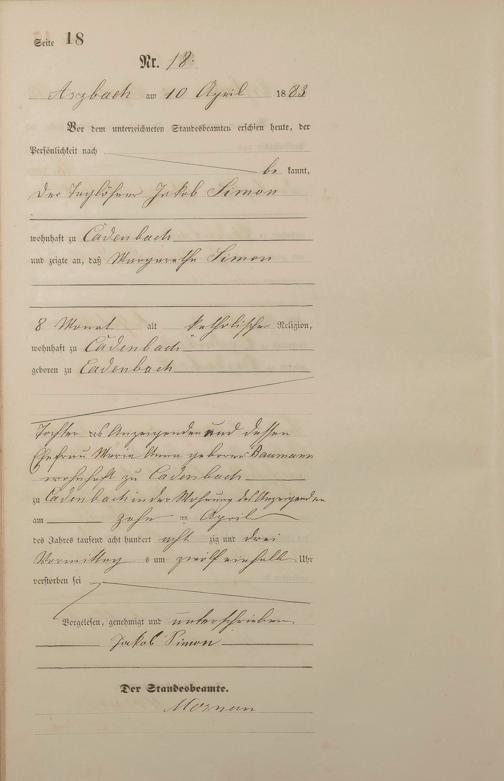 Seite 18
Nr. 18.
Arzbach am 10 April 1883
Vor dem unterzeichneten Standesbeamten erschien heute, der
Persönlichkeit nach
be kannt,
der Taglöhner Jakob Simon
wohnhaft zu Cadenbach
und zeigte an, daß Margarethe Simon
8 Monat alt katholischer Religion,
wohnhaft zu Cadenbach
geboren zu Cadenbach
Tochter des Anzeigenden und dessen
Ehefrau Maria Anna geborene Baumann
wohnhaft zu Cadenbach
zu Cadenbach in der Wohnung des Anzeigenden
am zehn ten April
des Jahres tausend acht hundert acht zig und drei
Vormittag s um zwölf einhalb Uhr
verstorben sei
Vorgelesen, genehmigt und unterschrieben
Jakob Simon
Der Standesbeamte.